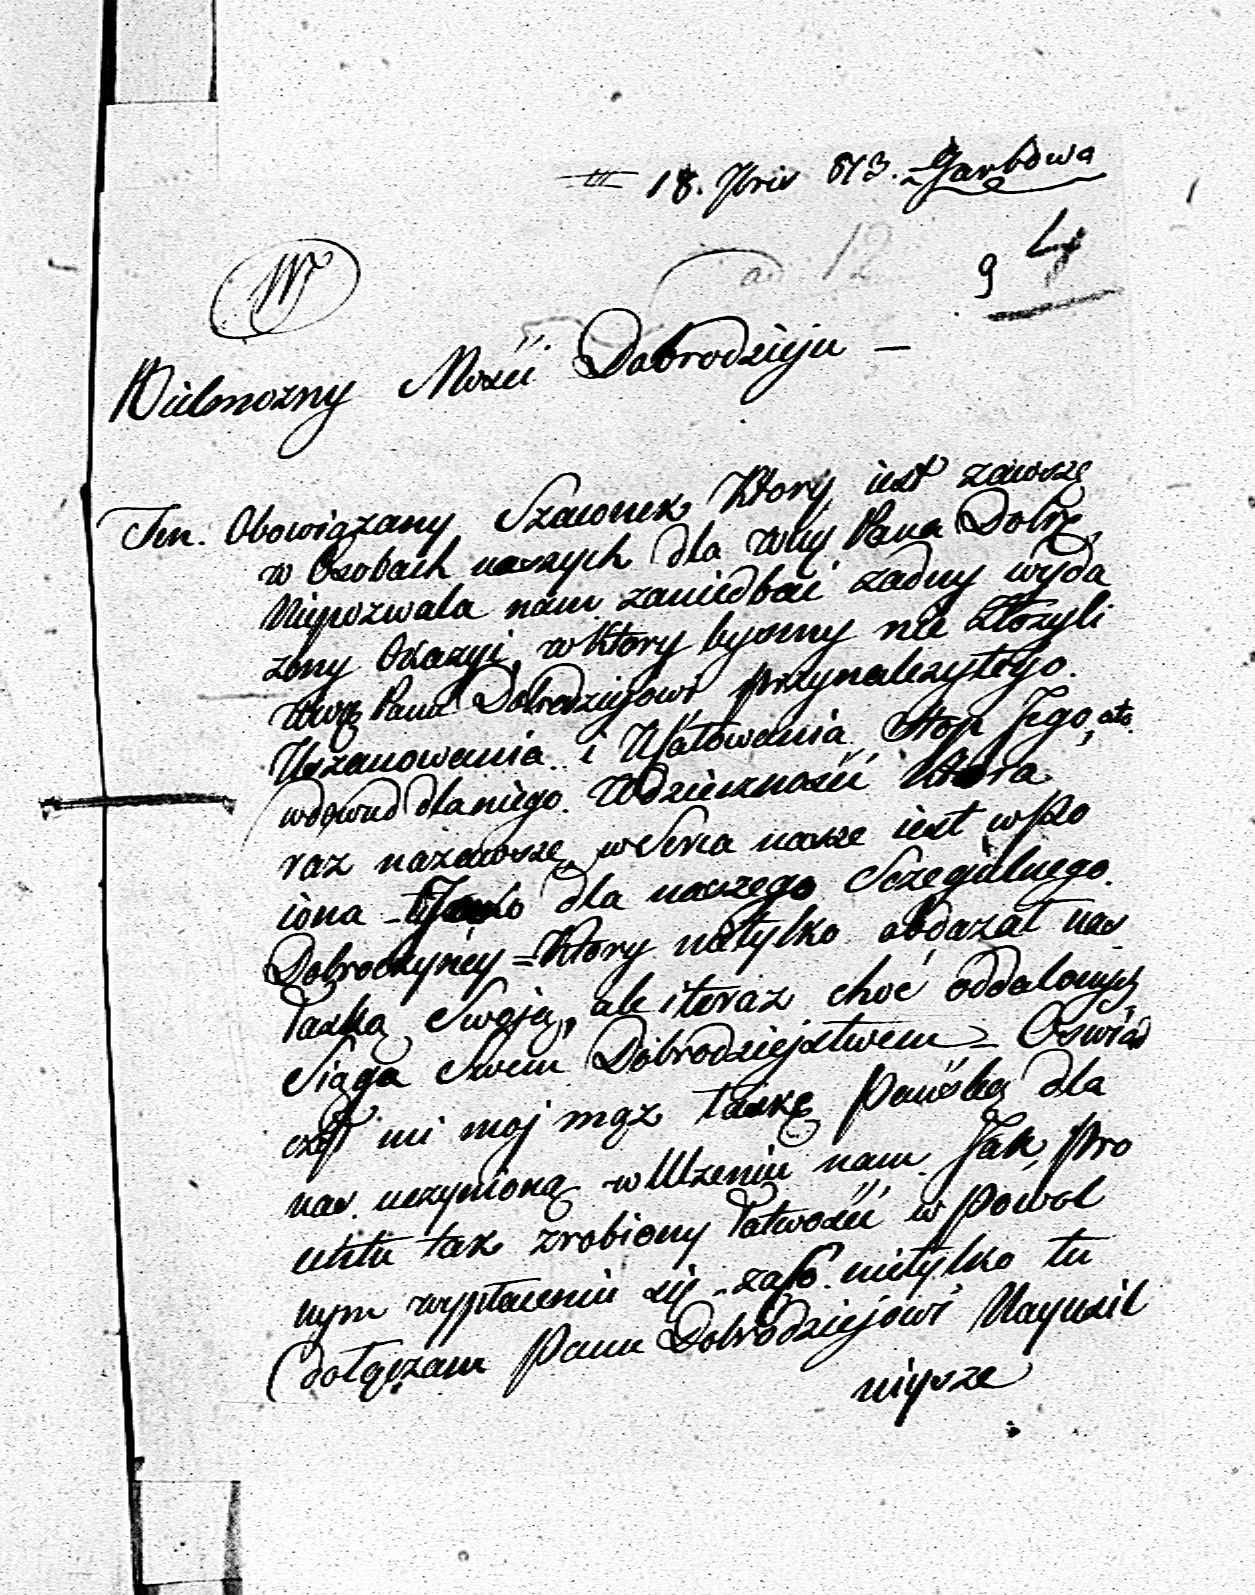 18. 7bris 813. Garbowa
ad 12
9 4
W
Wielmozny Mości Dobrodzieju —
Ten. Obowiązany Szacunek Ktory iest zawsze
w Osobach naszych dla WMę Pana Dobrę
Niepozwala nam zaniedbać zadny wyda
zony Okazyi, w Ktory bysmy nie złozyli
Panu Dobrodziejowi przynalezytego.
Uszanowania i Ucałowania Stop Jego, ato
wdowud dla niego. Wdzieczności Ktora
raz nazawsze w Serca nasze iest wpo
iona Jako dla naszego Sczegulnego.
Dobroczyńcy = Ktory nietylko obdazał nas
łaską Swoją, ale i teraz choć oddalonych
Siąga Swem Dobrodziejstwem = Oswiad
czył mi moj mąz łaskę Pańską dla
nas. uczynioną w Ulzeniu nam. Jak Pro
centu tak zrobiony łatwości w Powol
nym wypłaceniu się - zaco. nietylko tu
dołączam Panu Dobrodziejowi Nayusil
nieysze